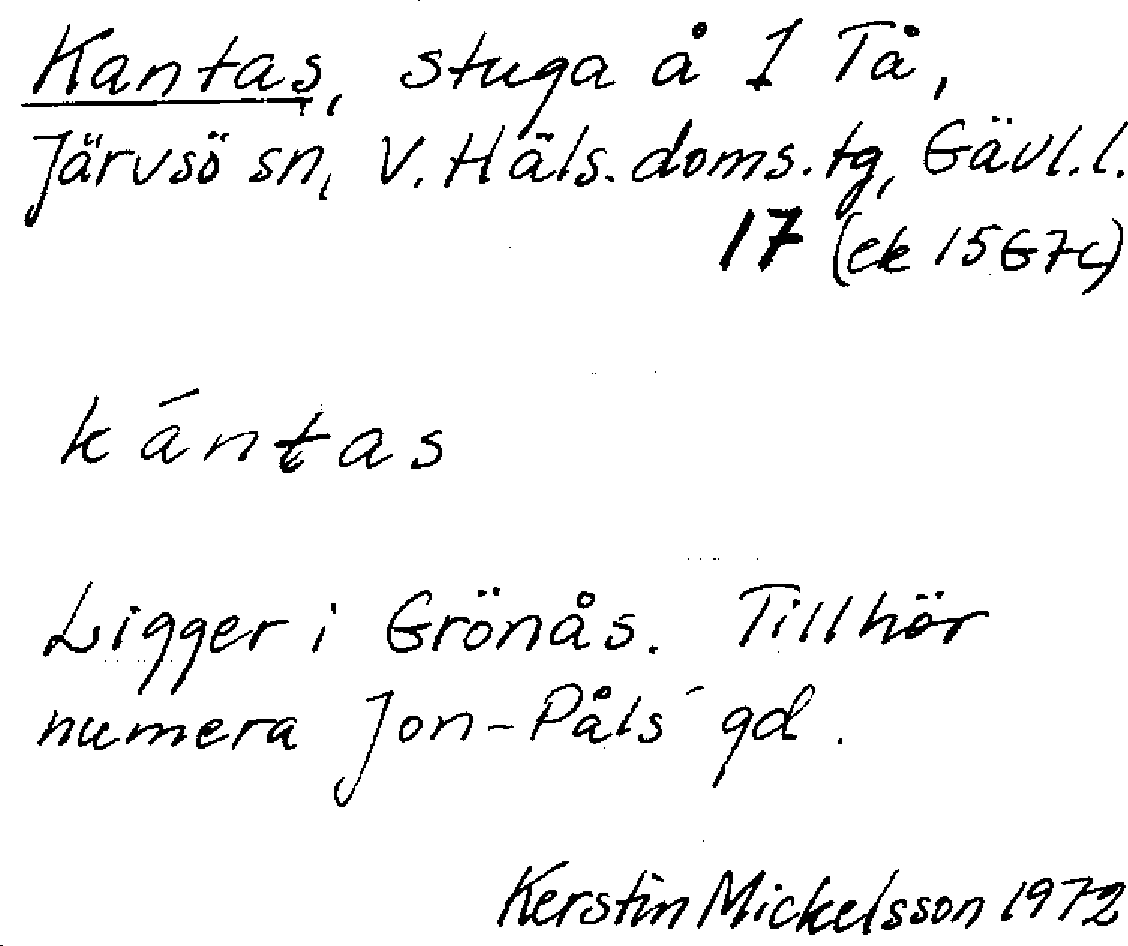 Kantas, stuga å 1 Tå,
Järvsö sn, V. Häls. doms. tg, Gävl. l.
17 (ek 15G7c)
kántas
Ligger i Grönås. Tillhör
numera Jon-Påls' gd.
Kerstin Mickelsson 1972